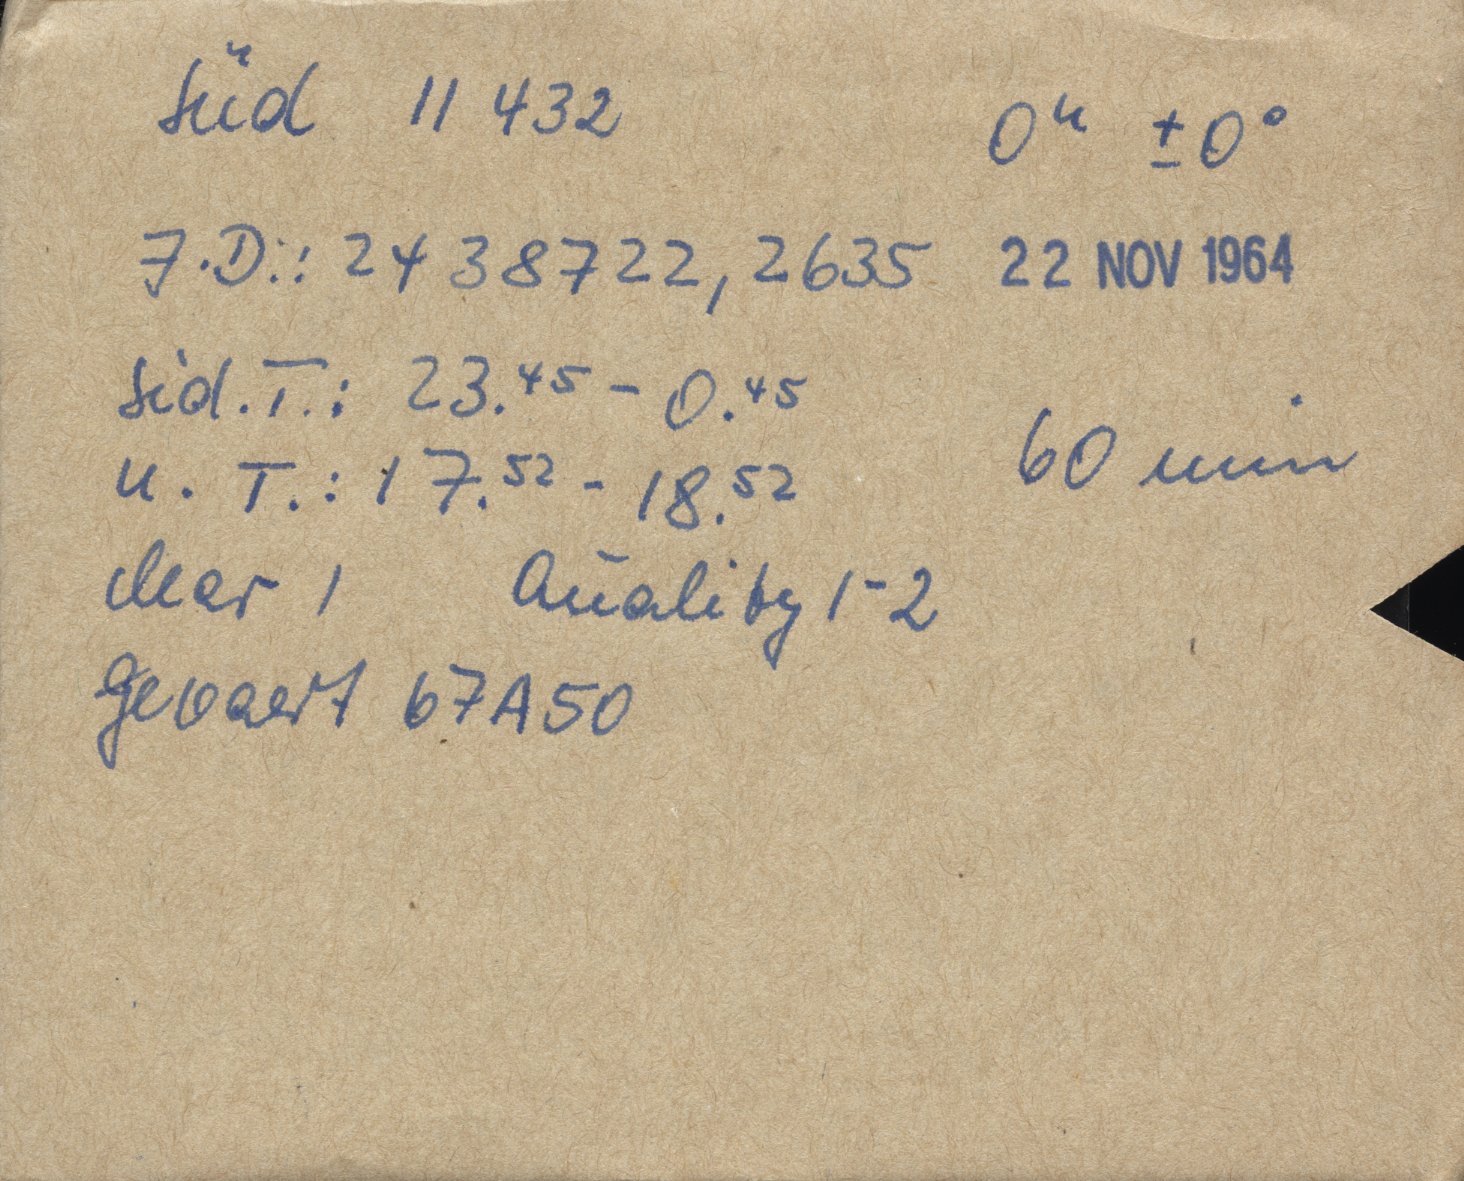 Süd 11 432 0ʰ ±0°
J.D.: 2438722,2635 22 NOV 1964
Sid.T.: 23.⁴⁵ - 0.⁴⁵
U.T.: 17.⁵² - 18.⁵² 60 min
clear 1 Quality 1-2
Gevaert 67A50